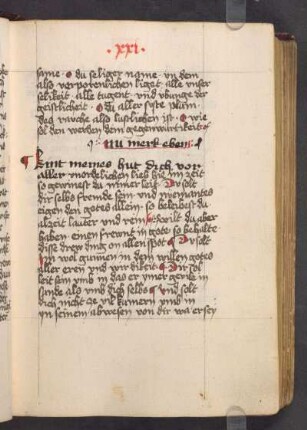 xxi.
same · O du seliger name · yn dem
also verporgenlichen liget alle unser
selikeit · alle tugent vnd vbunge der
geistlicheit · O du aller suste plum ·
des rauche also lustlichen ist · O wie
sol den werden dem gegenwurtikeit
nu merk eben
kint meines hut dich vor
aller mordelichen lieb hie im zeit
so gewinest du nimer leit · Du solt
dir selbs fremde sein vnd niemantes
eigen den gotes allein · so beleibest du
alzeit lauter vnd rein · wilt du aber
haben einen freunt in gote so behalte
disse drew ding on allen spot · Du solt
im wol gunnen in dem willen gotes
aller eren vnd wirdikeit · Dir sol
leit sein vmb in das er ymer gerue in
sunde als vmb dich selbs · vnd solt
dich nicht ze vil kumern vmb in
yn seinem abwesen von dir wa er sey